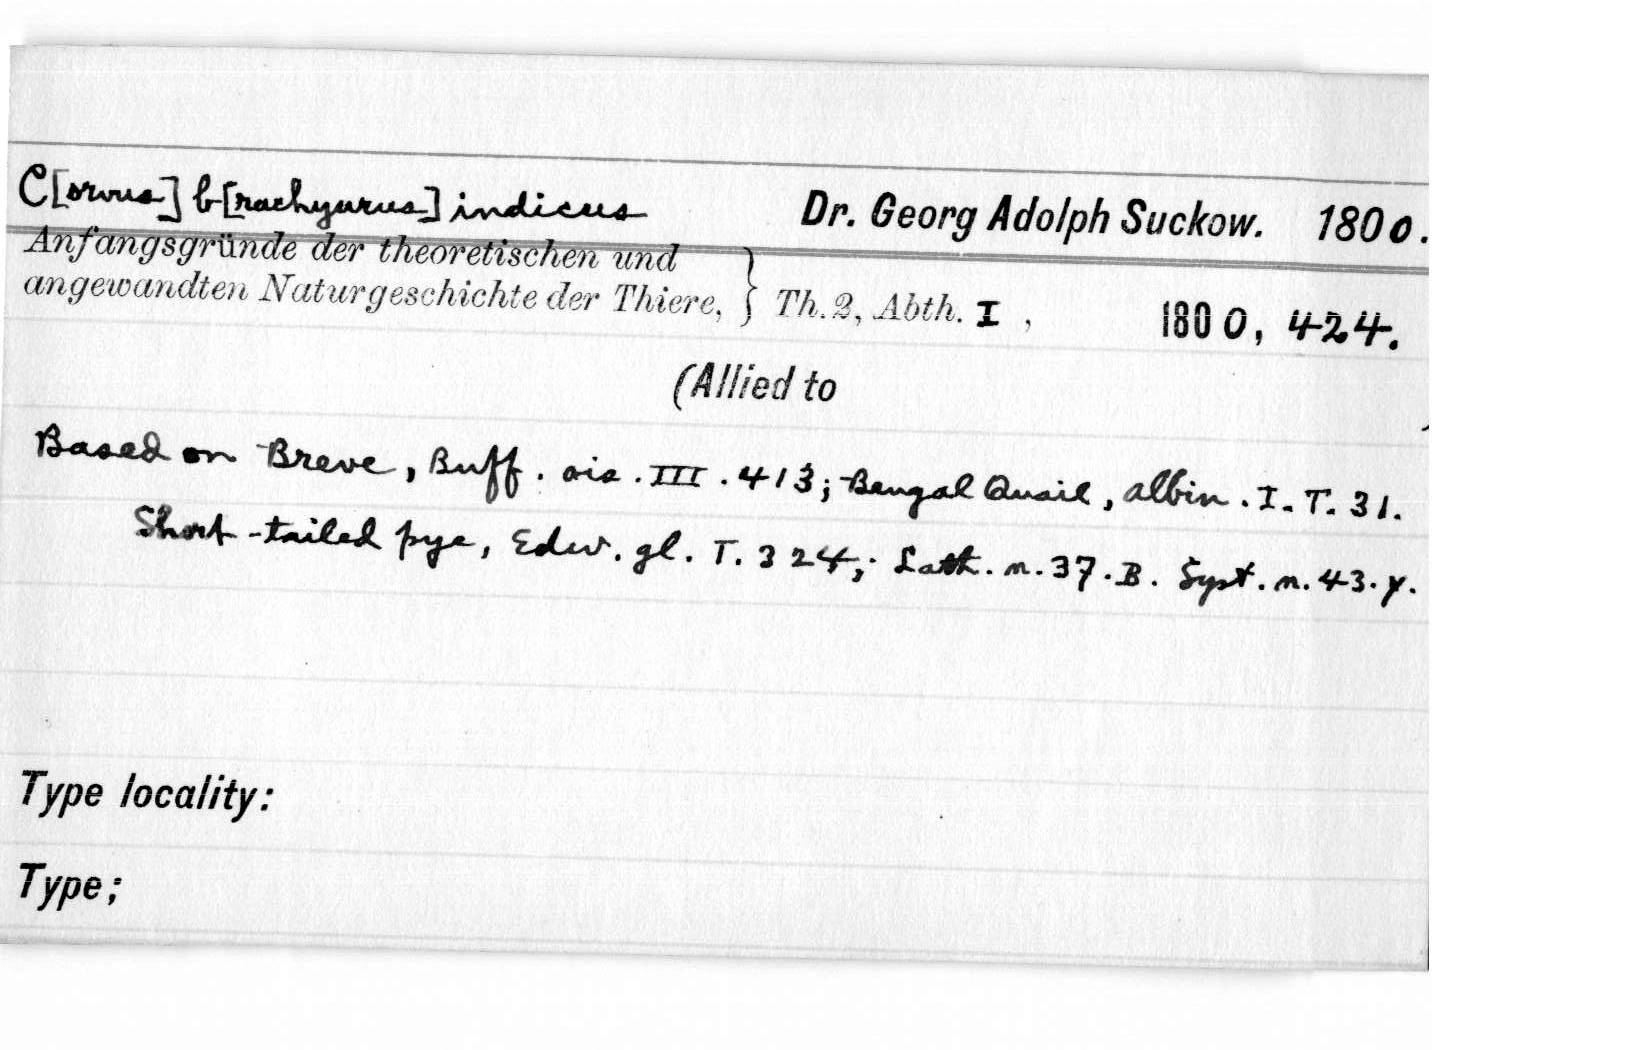 C[orvus] b[rachyurus] indicus Dr. Georg Adolph Suckow. 1800.
Anfangsgründe der theoretischen und
angewandten Naturgeschichte der Thiere, } Th. 2, Abth. I , 1800, 424.
(Allied to
Based on Breve, Buff. ois. III. 413; Bengal Quail, Albin. I. T. 31.
Short-tailed pye, Edw. gl. T. 324; Lath. n. 37. B. Syst. n. 43. γ.
Type locality:
Type;